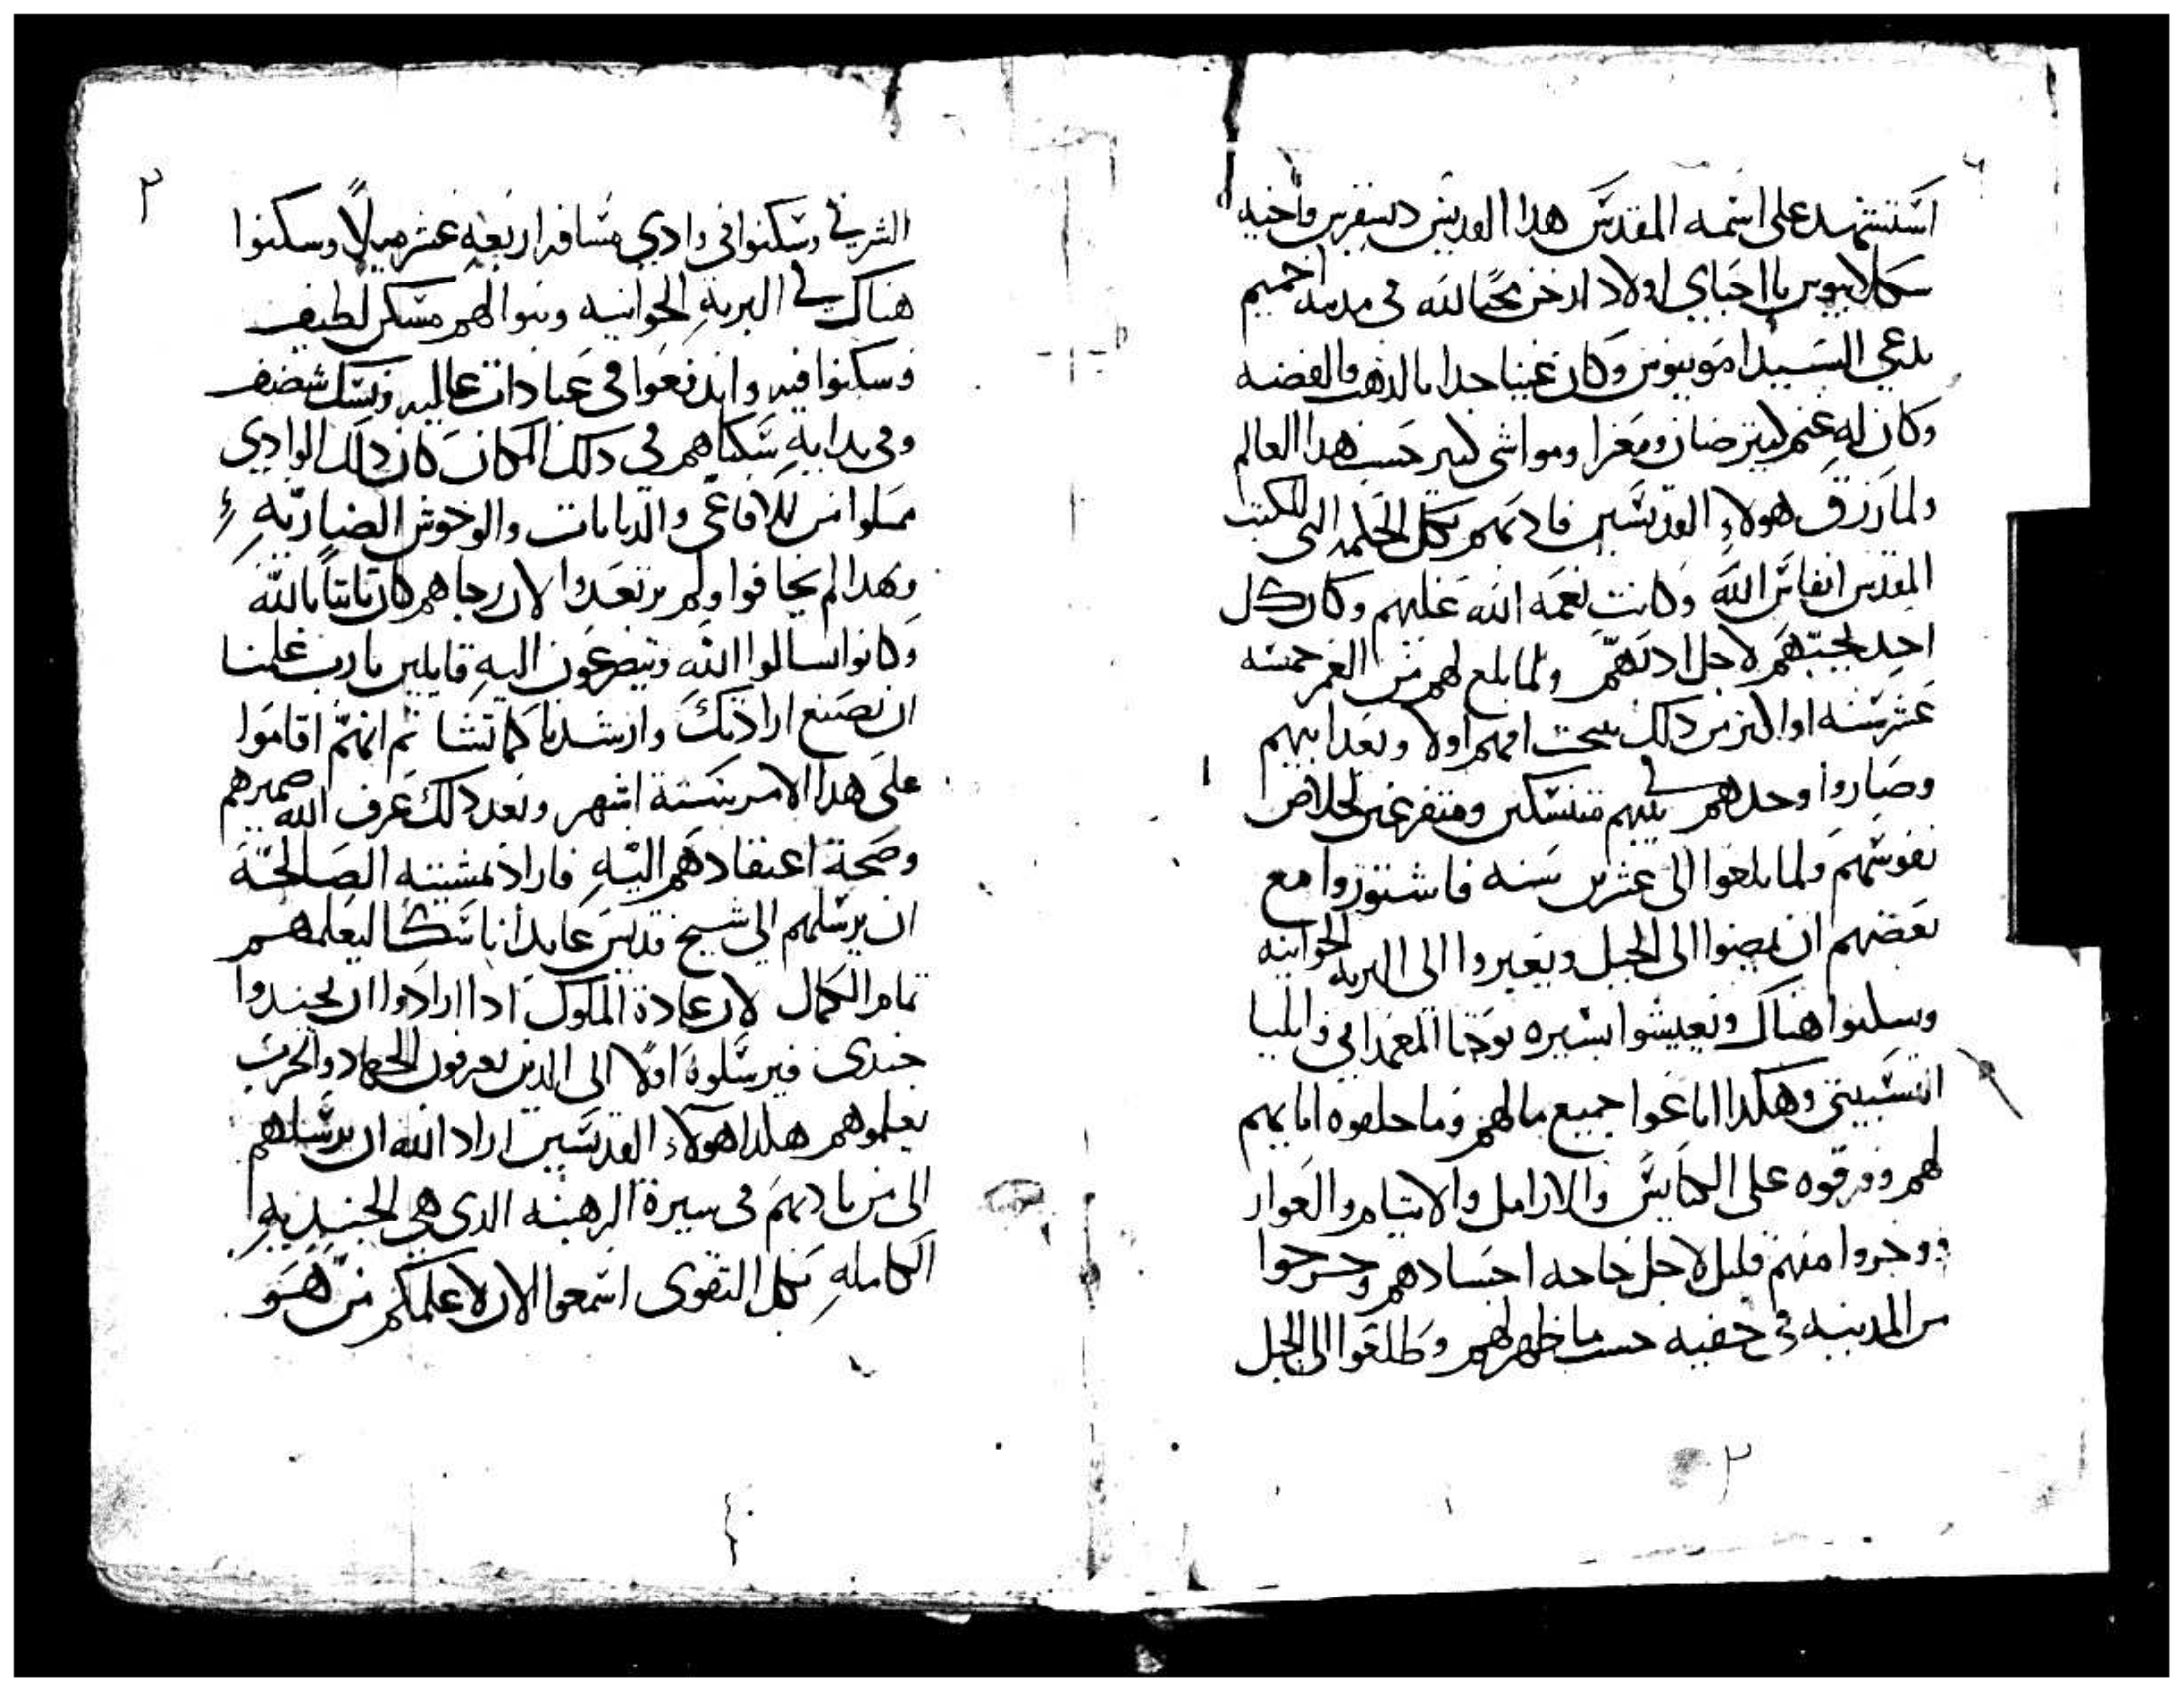 استشهد على اسمه المقدس هدا القديس دسيقرس واخيه
سكلابيوس يا احباي اولاد ارخن محبا لله في مدينه اخميم
يدعي السيد امونيوس وكان غنيا جدا بالدهب والفضه
وكان له غنم كتير ضان ومعزا ومواشي كتير حسب هدا العالم
ولما رزق هولاء القديسين فادبهم بكل الحكمه التي للكتب
المقدس انفاس الله وكانت نعمه الله عليهم وكان كل
احد يحبهم لاجل ادبهم ولما بلع لهم من العمر خمسه
عشر سنه او اكتر من دلك تنيحت امهم اولا وبعدا ابيهم
وصاروا وحدهم في بيتهم متنسكين ومتفرغين لخلاص
نفوسهم ولما بلغوا الى عشرين سنه فاشتوروا مع
بعضهم ان يمضوا الى الجبل ويعبروا الى البريه الجوانيه
وسكنوا هناك وتعيشوا بسيره يوحنا المعمداني وايليا
التسبيتي وهكدا اباعوا جميع مالهم وما خلفوه ابايهم
لهم وفرقوه على الكنايس والارامل والايتام والعواز
ووخروا منهم قليل لاجل حاجه اجسادهم وخرجوا
من المدينه في خفيه حسب ما ظهر لهم وطلعوا الى الجبل
٢
٣
الشرقي وسكنوا في وادي مسافه اربعه عشر ميلا وسكنوا
هناك في البريه الجوانيه وبنوا لهم مسكن لطيف
وسكنوا فيه واندفعوا في عبادات عاليه ونسك شضف
وفي بدايه سكناهم في دلك المكان كان دلك الوادي
مملوا من الافاعي والدبابات والوحوش الضاريه
وهدا لم يخافوا ولم يرتعدوا لان رجاهم كان تابتا بالله
وكانوا يسالوا الله ويتضرعون اليه قايلين يارب علمنا
ان نصنع ارادتك وارشدنا كما تشا تم انهم اقاموا
على هدا الامر ستة اشهر وبعد دلك عرف الله ضميرهم
وصحة اعتقادهم اليه فاراد بمشيته الصالحة
ان يرسلهم الى شيخ قديس عابدا ناسكا ليعلمهم
تمام الكمال لان عادة الملوك ادا ارادوا ان يجندوا
جندي فيرسلوه اولا الى الدين يعرفون الجهاد والحرب
يعلموهم هكدا هولاء القديسين اراد الله ان يرسلهم
الى من يادبهم في سيرة الرهبنه الدي هي الجنديه
الكامله بكل التقوى اسمعوا الان لاعلمكم من هو